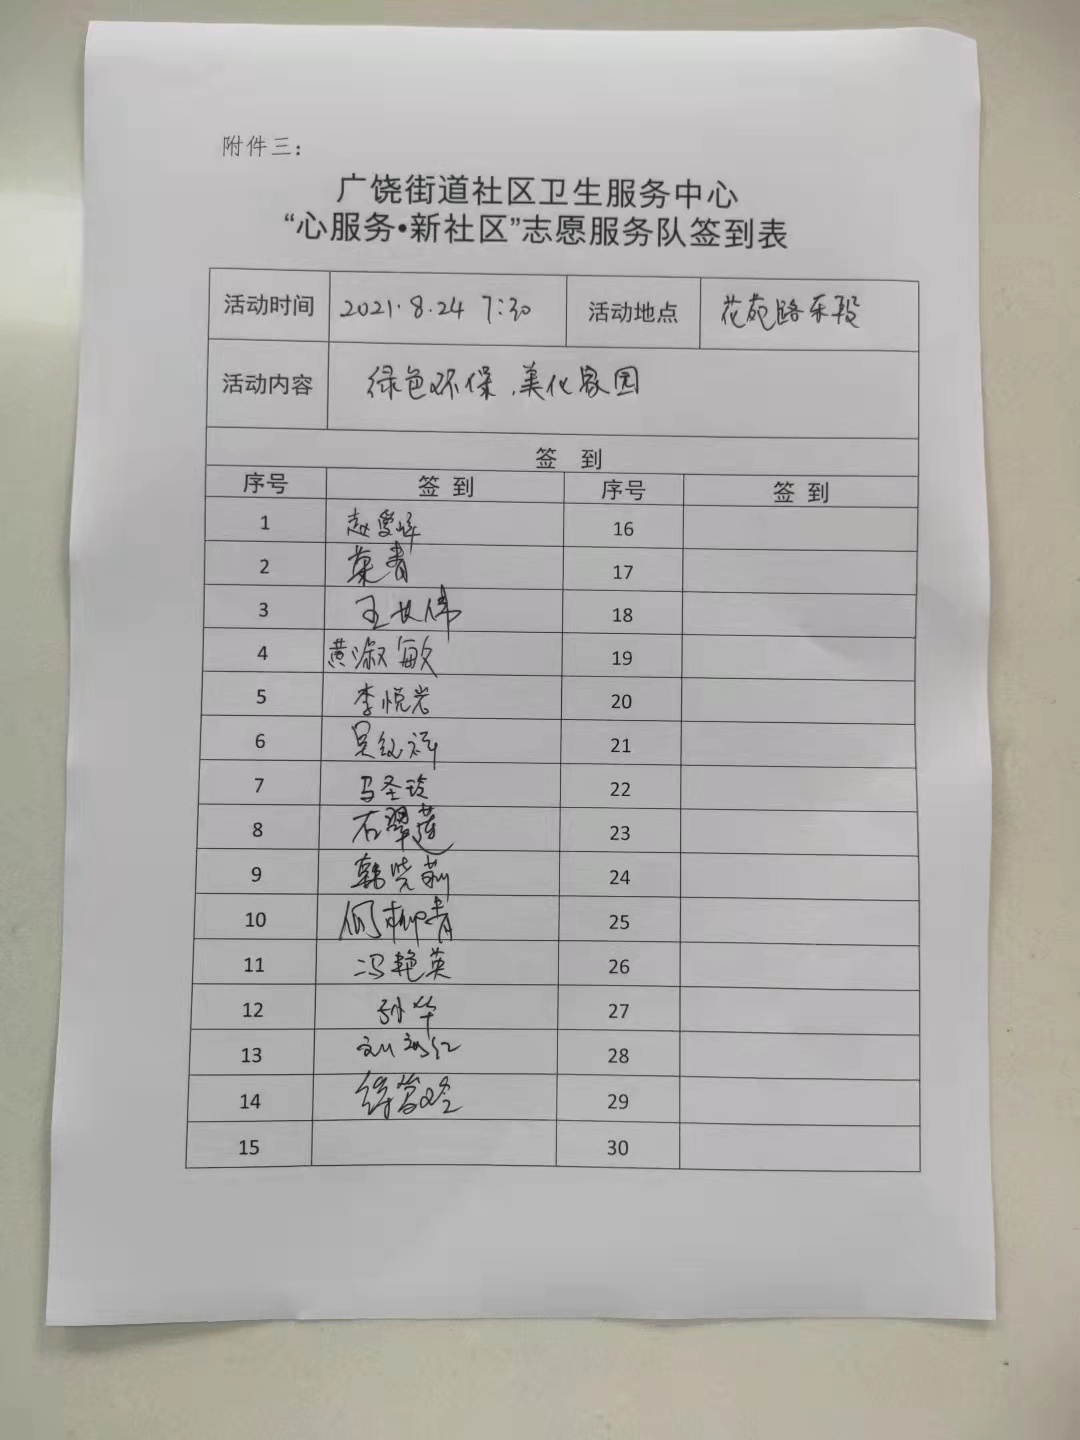 附件三：
广饶街道社区卫生服务中心
“心服务•新社区”志愿服务队签到表
活动时间 2021.8.24 7:30 活动地点 花苑路东段
活动内容 绿色环保，美化家园
签 到
序号 签 到 序号 签 到
1 赵爱峰 16
2 青 17
3 王 伟 18
4 黄淑敏 19
5 李悦岩 20
6 吴红祥 21
7 马圣玲 22
8 石翠莲 23
9 韩晓莉 24
10 何柳青 25
11 冯艳英 26
12 孙华 27
13 刘 红 28
14 29
15 30